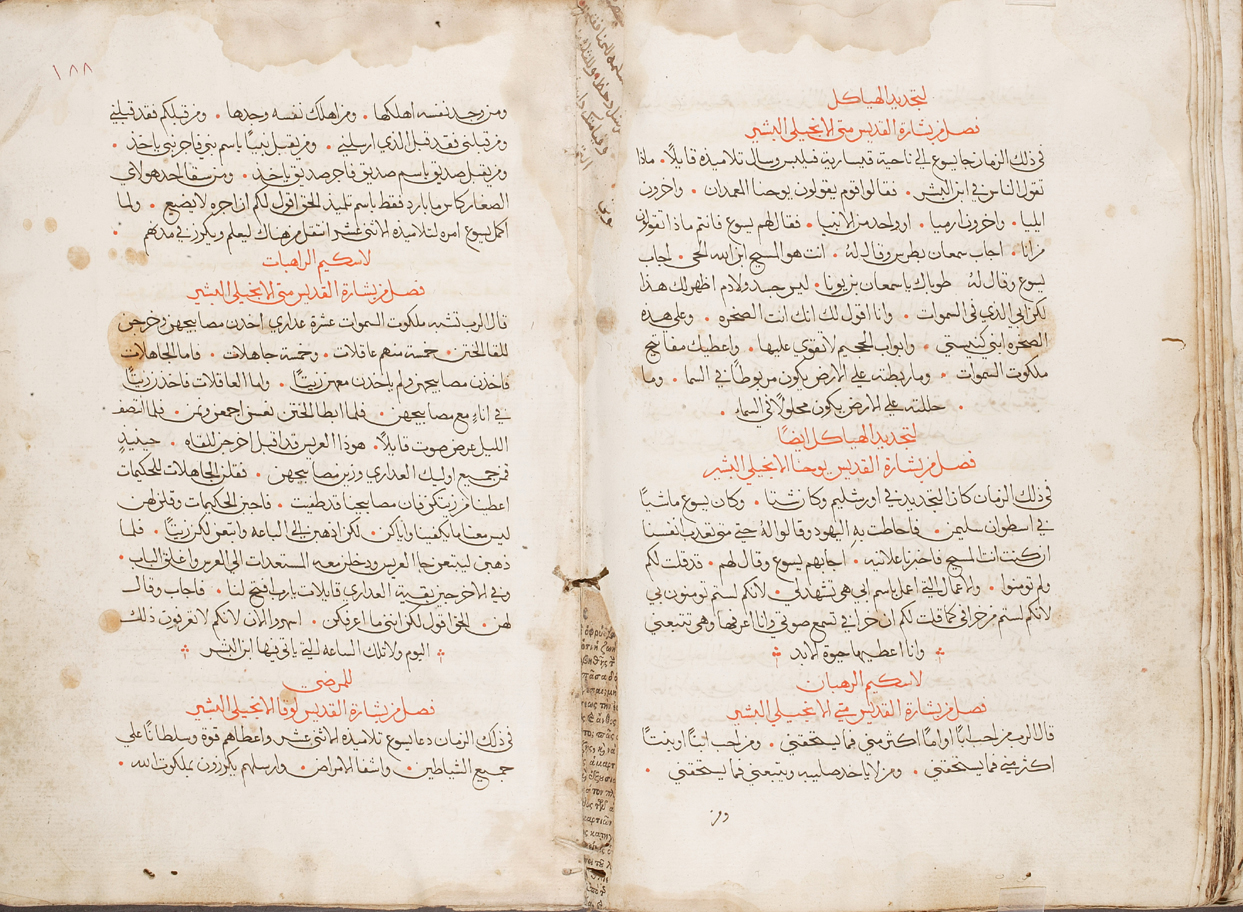 لتجديد الهياكل
فصل من بشارة القديس متى الانجيلي البشير
في ذلك الزمان جا يسوع الى ناحية قيسارية فيلبس وسال تلاميذه قايلًا • ماذا
تقول الناس في ابن البشر • فقالوا قوم يقولون يوحنا المعمدان • واخرون
ايليا • واخرون ارميا • او واحد من الانبيا • فقال لهم يسوع فانتم ماذا تقولون
من انا • اجاب سمعان بطرس وقال لهُ • انت هو المسيح ابن الله الحي • اجاب
يسوع وقال لهُ طوباك يا سمعان بن يونا • ليس جسد ولا دم اظهر لك هذا
لكن ابي الذي في السموات • وانا اقول لك انك انت الصخره • وعلى هذه
الصخره ابني كنيستي • وابواب الجحيم لا تقوي عليها • واعطيك مفاتيح
ملكوت السموات • وما ربطته على الارض يكون مربوطاً في السما • وما
• حللته على الارض يكون محلولًا في السماء •
لتجديد الهياكل ايضًا
فصل من بشارة القديس يوحنا الانجيلي البشير
في ذلك الزمان كان التجديد في اورشليم وكان شتا • وكان يسوع ماشيًا
في اسطوان سليمن • فاحاطت به اليهود وقالوا لهُ حتى متى تعذب انفسنا
ان كنت انت المسيح فاخبرنا علانيه • اجابهم يسوع وقال لهم • قد قلت لكم
ولم تومنوا • والاعمال التي اعمل باسم ابي هي تشهد لي • لانكم لستم تومنون بي
لانكم لستم من خرافي كما قلت لكم ان خرافي تسمع صوتي وانا اعرفها وهي تتبعني
وانا اعطيها حيوة الابد
لاسكيم الرهبان
فصل من بشارة القديس متى الانجيلي البشير
قال الرب من احب ابًا او امًا اكثر مني فما يستحقني • ومن احب ابنًا او بنتًا
اكثر مني فما يستحقني • ومن لا ياخذ صليبه ويتبعني فما يستحقني •
ومن
١٨٨
ومن وجد نفسه اهلكها • ومن اهلك نفسه وجدها • ومن قبلكم فقد قبلني
ومن قبلني فقد قبل الذي ارسلني • ومن يقبل نبيًا باسم نبي فاجر نبي ياخذ •
ومن يقبل صديق باسم صديق فاجر صديق ياخذ • ومن سقا احد هولاي
الصغار كاس ما بارد فقط باسم تلميذ الحق اقول لكم ان اجره لا يضيع • ولما
اكمل يسوع امره لتلاميذه الاثني عشر انتقل من هناك ليعلم ويكرز في مدنهم •
لاسكيم الراهبات
فصل من بشارة القديس متى الانجيلي البشير
قال الرب تشبه ملكوت السموات عشرة عذاري اخذن مصابيحهن وخرجن
للقا الختن • خمسة منهم عاقلات • وخمسة جاهلات • فاما الجاهلات
فاخذن مصابيحهن ولم ياخذن معهن زيتًا • واما العاقلات فاخذن زيتًا
في اناءٍ مع مصابيحهن • فلما ابطا الختن نعسن اجمعن ونمن • فلما انتصف
الليل عرض صوت قايلًا • هوذا العريس قد اقبل اخرجن للقاه • حينيذٍ
قمن جميع اوليك العذاري وزين مصابيحهن • فقلن الجاهلات للحكيمات
اعطينا من زيتكن فان مصابيحنا قد طفيت • فاجبن الحكيمات وقلن لهن
ليس معنا ما يكفينا واياكن • لكن اذهبن الى الباعه وابتعن لكن زيتًا • فلما
ذهبن ليبتعن جا العريس ودخلن معه المستعدات الى العرس واغلق الباب •
وفي الاخر جين بقية العذاري قايلات يا رب افتح لنا • فاجاب وقال
لهن • الحق اقول لكن انني ما اعرفكن • اسهروا الان لانكم لا تعرفون ذلك
اليوم ولا تلك الساعه التي ياتي فيها ابن البشر
للمرضى
فصل من بشارة القديس لوقا الانجيلي البشير
في ذلك الزمان دعا يسوع تلاميذه الاثني عشر واعطاهم قوة وسلطانًا على
جميع الشياطين • واشفا الامراض • وارسلهم يكرزون بملكوت الله •